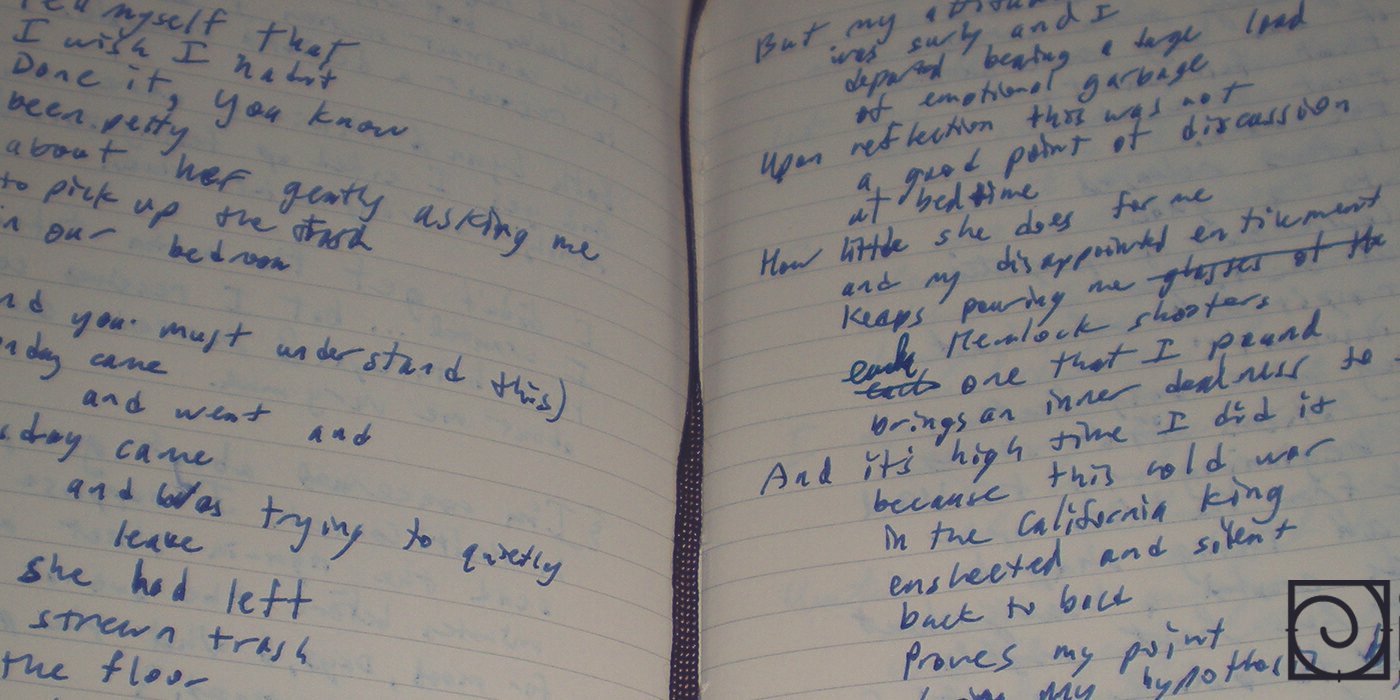 myself that
I wish I hadnt
Done it, you know
been petty
about her gently asking me
to pick up the trash
in our bedroom
nd you must understand this)
nday came
and went and
sday came
and was trying to quietly
leave
she had left
strewn trash
the floor
But my attitude
was surly and I
departed bearing a large load
of emotional garbage
Upon reflection this was not
a good point of discussion
at bedtime
How little she does for me
and my disappointed entitement
keeps pouring me glasses of the
each Hemlock shooters
each one that I pound
brings an inner deadness to
And it's high time I did it
because this cold war
in the California king
ensheeted and silent
back to back
Proves my point
my hypothesis